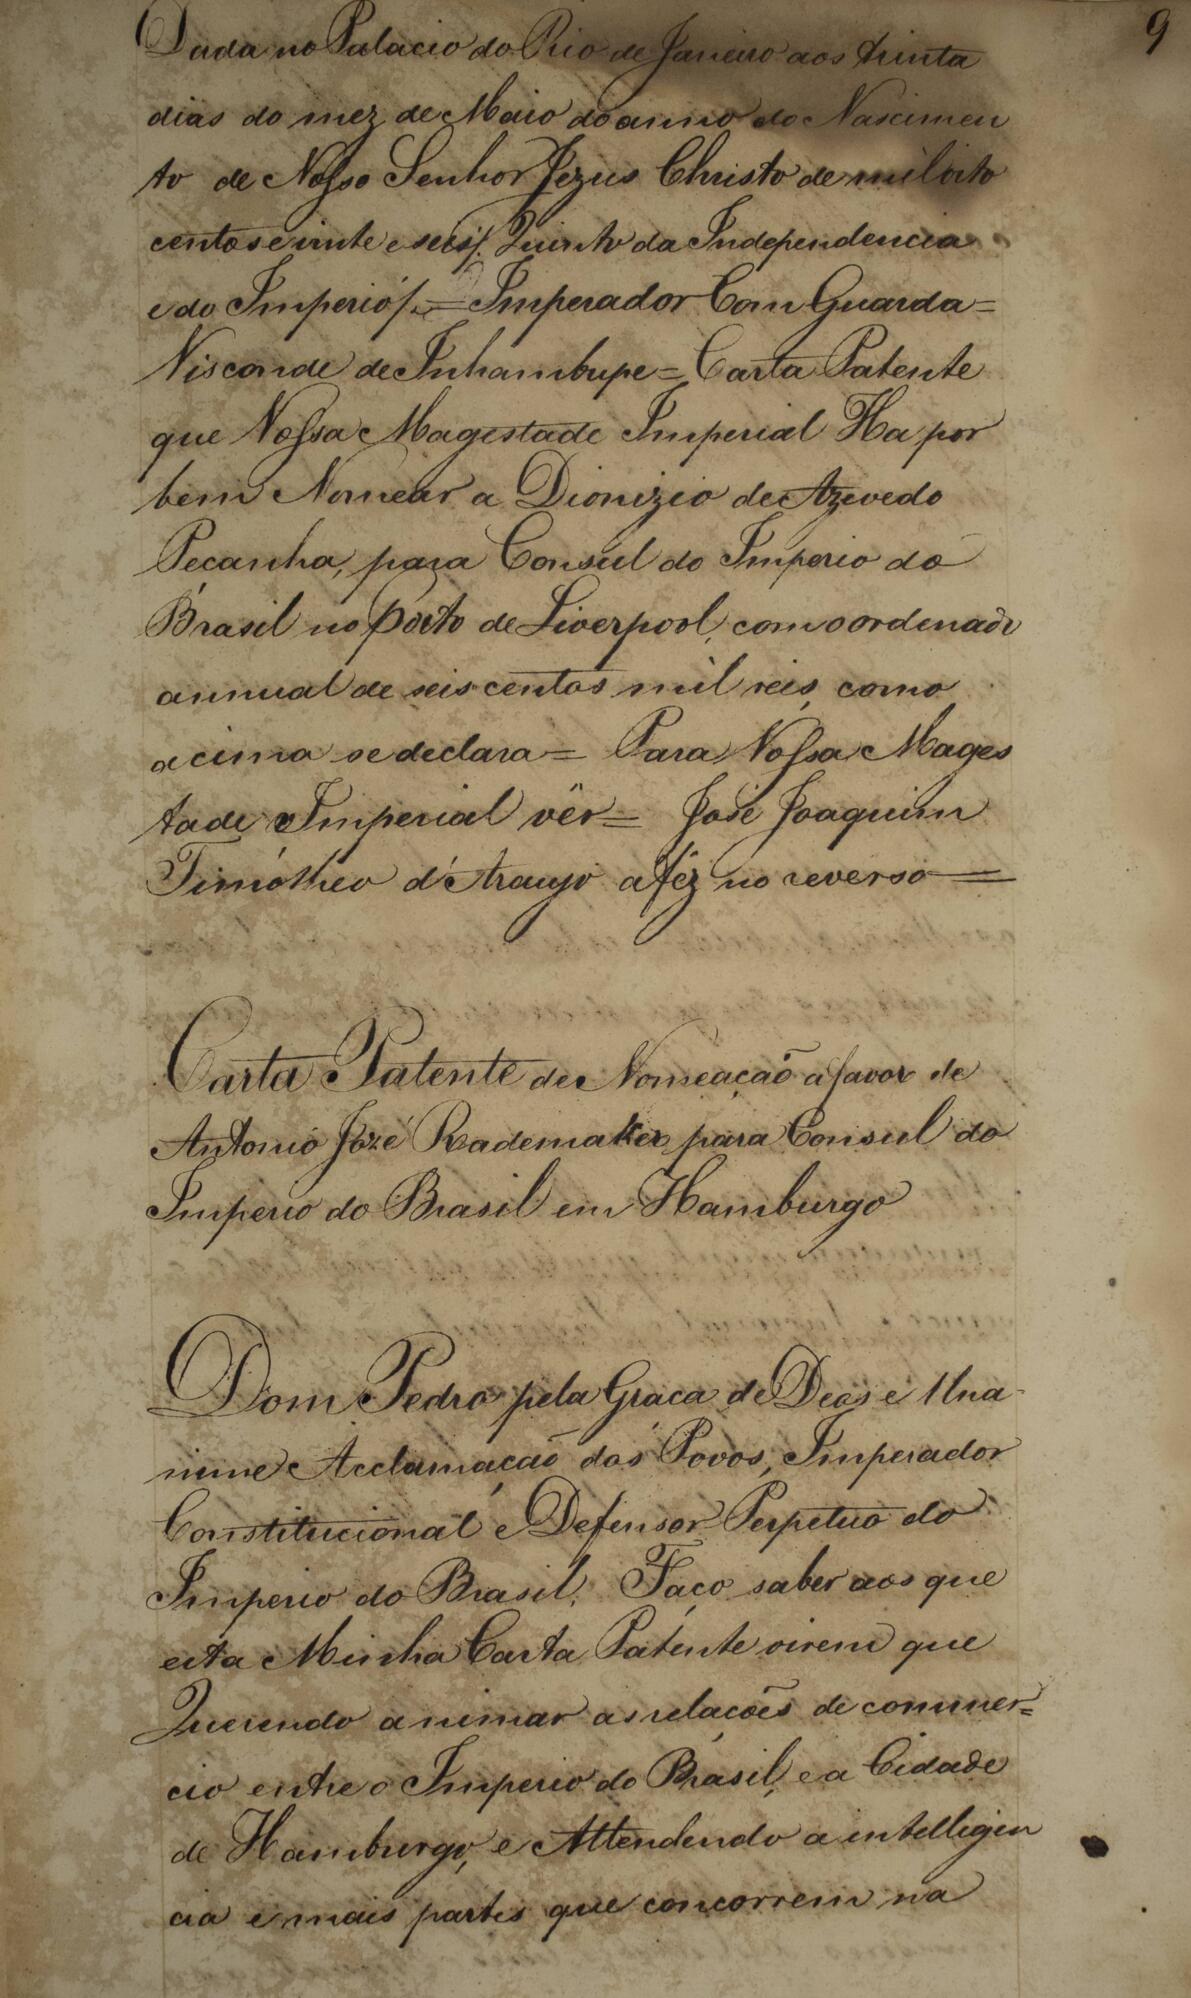 9
Dada no Palacio do Rio de Janeiro aos trinta
dias do mez de Maio do anno do Nascimen
to de Nosso Senhor Jezus Christo de mil oito
centos e vinte e seis/. Quinto da Independencia
e do Imperio/. = Imperador Com Guarda =
Visconde de Inhambupe = Carta Patente
que Vossa Magestade Imperial Ha por
bem Nomear a Dionizio de Azevedo
Peçanha, para Consul do Imperio do
Brasil no Porto de Liverpool, com o ordenado
annual de seis centos mil reis, como
acima se declara = Para Vossa Mages
tade Imperial vêr = José Joaquim
Timótheo d'Araujo a fêz no reverso =
Carta Patente de Nomeação a favor de
Antonio Jozé Rademaker, para Consul do
Imperio do Brasil em Hamburgo
Dom Pedro pela Graça de Deos e Una
nime Acclamação dos Povos, Imperador
Constitucional e Defensor Perpetuo do
Imperio do Brasil. Faço saber aos que
esta Minha Carta Patente virem que
Querendo animar as relações de commer=
cio entre o Imperio do Brasil, e a Cidade
de Hamburgo, e Attendendo a intelligen
cia e mais partes que concorrem na